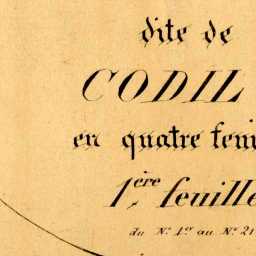 dite de
CODIL
en quatre feui
1ère feuille
du N.° 1.er au N.° 21